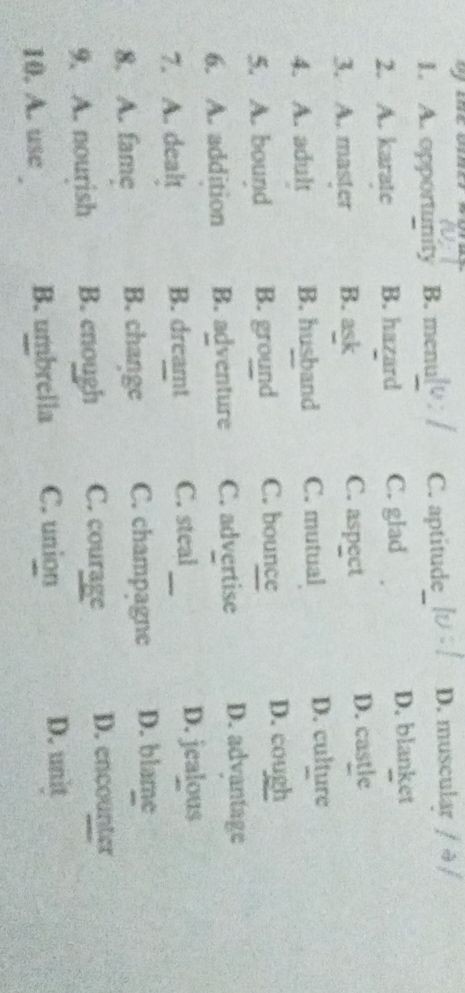 1. A. opportunity B. menu /u: / C. aptitude /u: / D. muscular / ə /
2. A. karate B. hazard C. glad D. blanket
3. A. master B. ask C. aspect D. castle
4. A. adult B. husband C. mutual D. culture
5. A. bound B. ground C. bounce D. cough
6. A. addition B. adventure C. advertise D. advantage
7. A. dealt B. dreamt C. steal D. jealous
8. A. fame B. change C. champagne D. blame
9. A. nourish B. enough C. courage D. encounter
10. A. use B. umbrella C. union D. unit